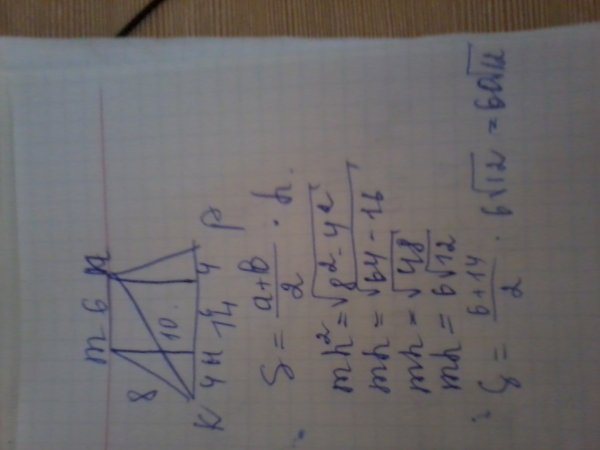 m 6 n
8
10
K 4 H 14 4 P
S = a+b/2 · h.
mh² = √8² - 4²
mh = √64 - 16
mh = √48
mh = 6√12
S = 6+14/2 · 6√12 = 60√12